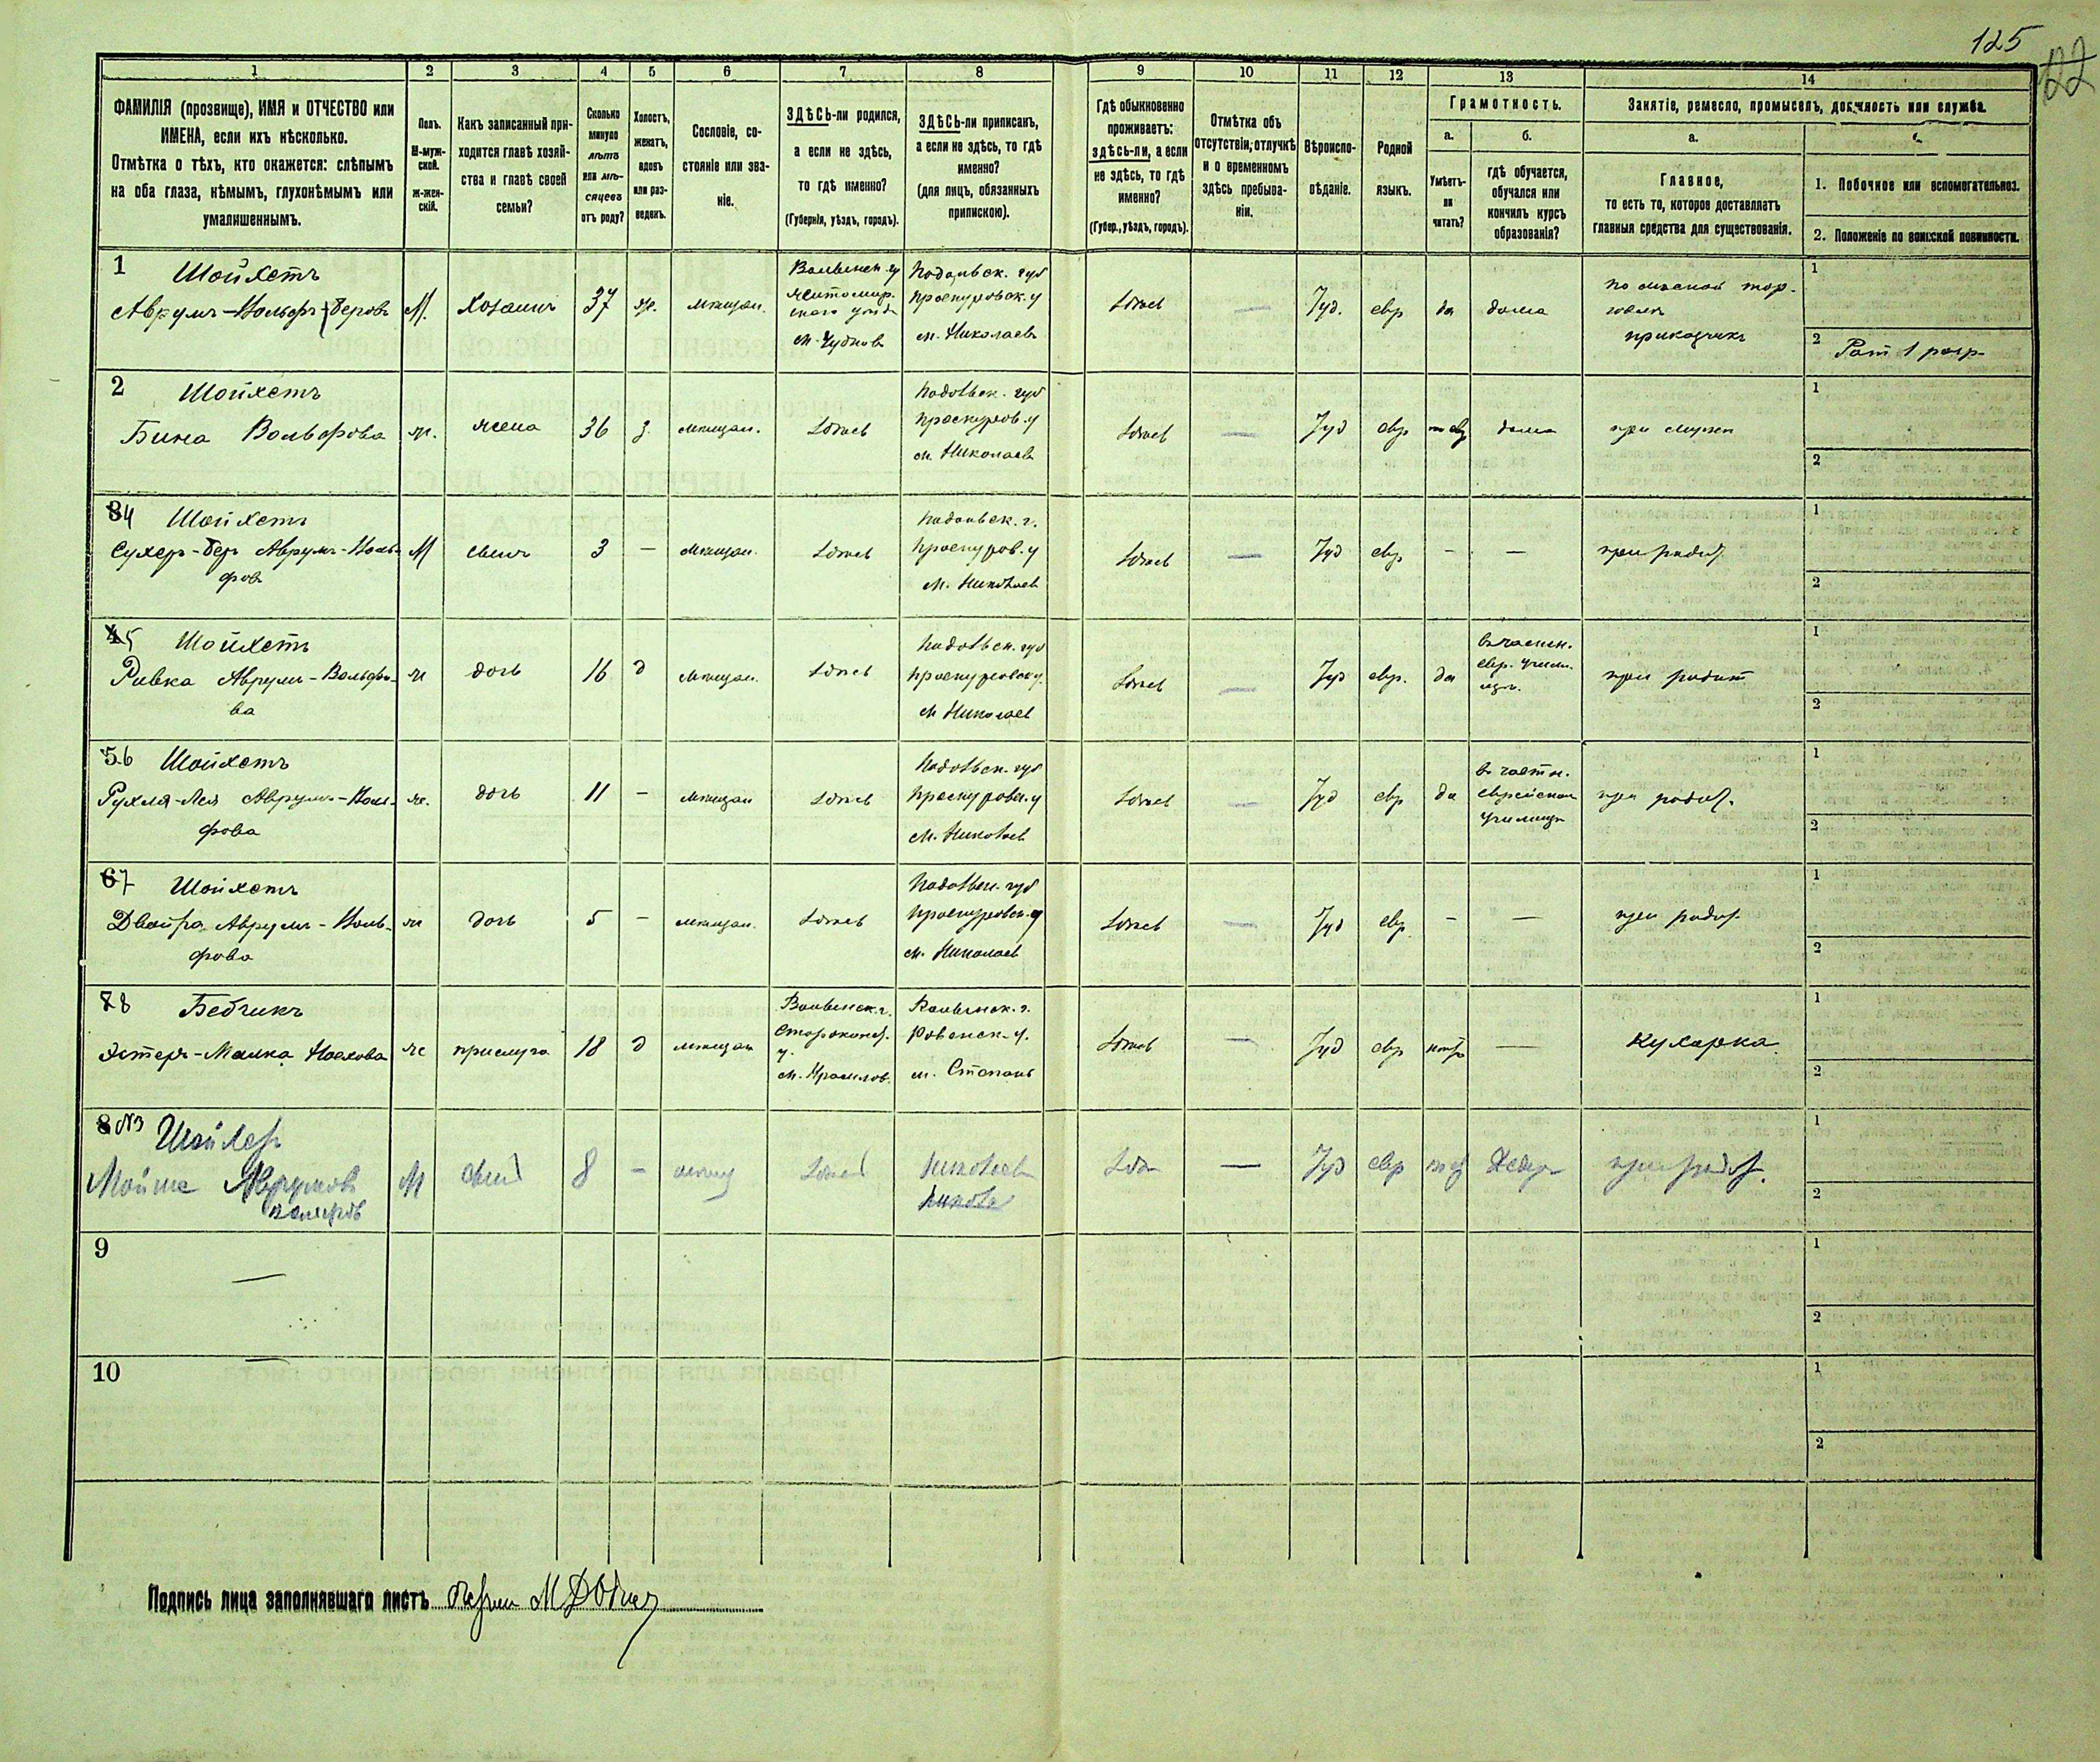 125
22
1 2 3 4 5 6 7 8 9 10 11 12 13 14
ФАМИЛІЯ (прозвище), ИМЯ и ОТЧЕСТВО или
ИМЕНА, если ихъ нѣсколько.
Отмѣтка о тѣхъ, кто окажется: слѣпымъ
на оба глаза, нѣмымъ, глухонѣмымъ или
умалишеннымъ.
Полъ.
М-муж-
ской.
ж-жен-
скій.
Какъ записанный при-
ходится главѣ хозяй-
ства и главѣ своей
семьи?
Сколько
минуло
лѣтъ
или мѣ-
сяцевъ
отъ роду?
Холостъ,
женатъ,
вдовъ
или раз-
веденъ.
Сословіе, со-
стояніе или зва-
ніе.
ЗДѢСЬ-ли родился,
а если не здѣсь,
то гдѣ именно?
(Губернія, уѣздъ, городъ).
ЗДѢСЬ-ли приписанъ,
а если не здѣсь, то гдѣ
именно?
(для лицъ, обязанныхъ
припискою).
Гдѣ обыкновенно
проживаетъ:
здѣсь-ли, а если
не здѣсь, то гдѣ
именно?
(Губер., уѣздъ, городъ).
Отмѣтка объ
отсутствіи, отлучкѣ
и о временномъ
здѣсь пребыва-
ніи.
Вѣроиспо-
вѣданіе.
Родной
языкъ.
Грамотность.
а.
Умѣетъ-
ли
читать?
б.
гдѣ обучается,
обучался или
кончилъ курсъ
образованія?
Занятіе, ремесло, промыселъ, должность или служба.
а.
Главное,
то есть то, которое доставляетъ
главныя средства для существованія.
1. Побочное или вспомогательное.
2. Положеніе по воинской повинности.
1
Шойхетъ
Аврумъ-Вольфъ-Беровъ
М.
Хозяинъ
37
ж.
мѣщан.
Волынск. г
Житомир-
скаго уѣзда
м. Чудновъ
Подольск. губ
Проскуровск. у
м. Николаевъ
Здѣсь
—
Iуд.
евр
да
дома
по лѣсной тор-
говлѣ
приказчикъ
1
2
Рат 1 разр-
2
Шойхетъ
Бина Вольфова
ж.
жена
36
з.
мѣщан.
Здѣсь
Подольск. губ
Проскуров. у
м. Николаевъ
Здѣсь
—
Iуд
евр
дома
при мужѣ
1
2
34
Шойхетъ
Сухеръ-Беръ Аврумъ-Воль-
фовъ
М
сынъ
3
—
мѣщан.
Здѣсь
Подольск. г.
Проскуров. у
м. Николаев
Здѣсь
—
Iуд
евр
—
—
при родит.
1
2
45
Шойхетъ
Ривка Аврумъ-Вольфо-
ва
ж
дочь
16
д
мѣщан.
Здѣсь
Подольск. губ
Проскуровск у.
м Николаев
Здѣсь
—
Iуд
евр.
да
въ частн.
евр. учили-
щѣ.
при родит
1
2
56
Шойхетъ
Рухля-Лея Аврумъ-Воль-
фова
ж.
дочь
11
—
мѣщан
Здѣсь
Подольск. губ
Проскуровск. у
м. Николаев
Здѣсь
—
Iуд
евр
да
въ частн.
еврейском
училищѣ
при родит.
1
2
67
Шойхетъ
Двойра Аврумъ-Воль-
фова
ж
дочь
5
—
мѣщан.
Здѣсь
Подольск. губ
Проскуровск. у
м. Николаев
Здѣсь
—
Iуд
евр.
—
—
при родит.
1
2
78
Бебчикъ
Эстеръ-Малка Носхова
ж
прислуга
18
д
мѣщан
Волынск. г.
Староконст.
у.
м. Красилов.
Волынск. г.
Ровенск. у.
м. Степань
Здѣсь
—
Iуд
евр
—
Кухарка
1
2
8 №3
Шойхет
Мойше Аврумов
Вольфов
М
сын
8
—
мѣщ
Здѣсь
Николаев
Здѣ
—
Iуд
евр
Хедер
при родит.
1
2
9
—
1
2
10
—
1
2
Подпись лица заполнявшаго листъ